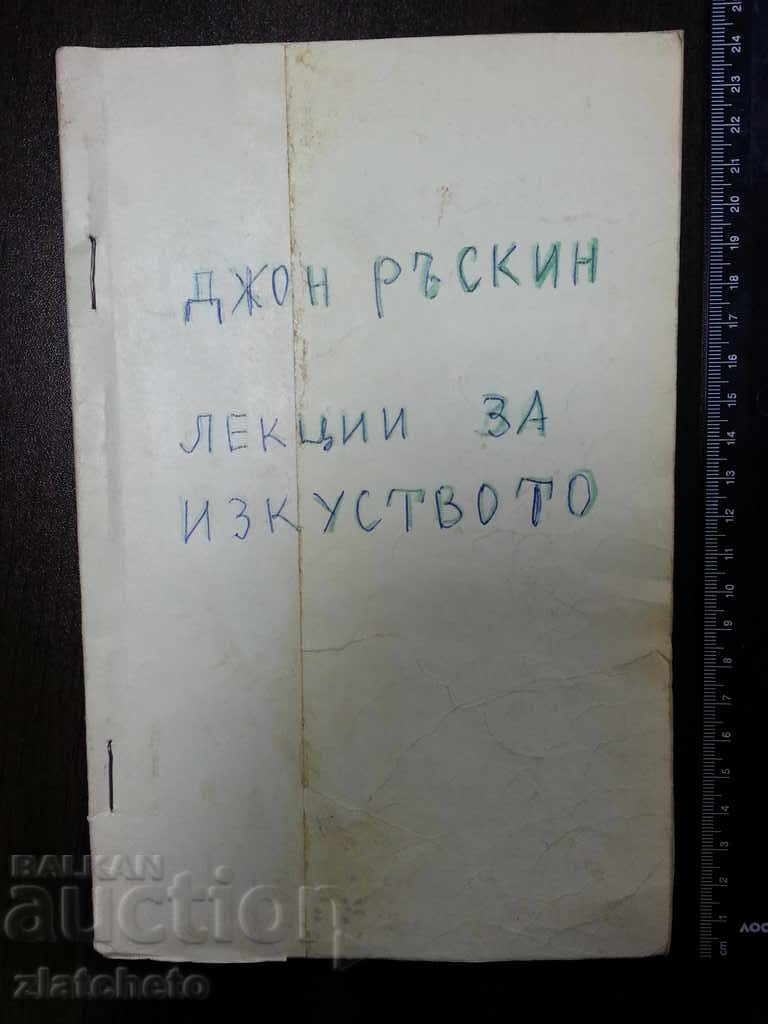 ДЖОН РЪСКИН
ЛЕКЦИИ ЗА
ИЗКУСТВОТО
BALKAN
auction
zlatcheto
cm 1 2 3 4 5 6 7 8 9 10 11 12 13 14 15 16 17 18 19 20 21 22 23 24